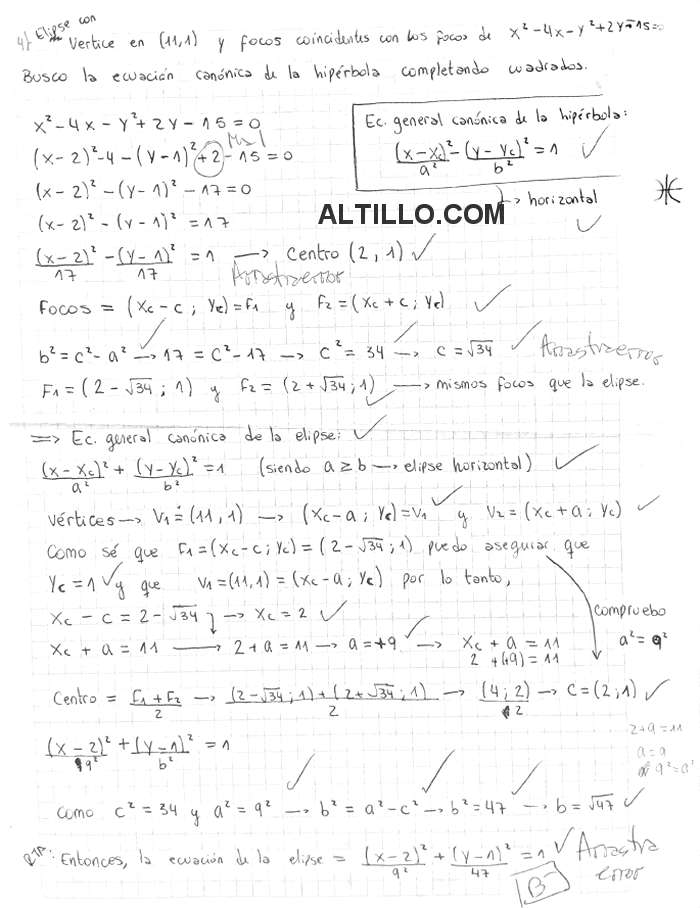 4) Elipse con
Vertice en (11,1) y focos coincidentes con los focos de x²-4x-y²+2y-15=0
Busco la ecuación canónica de la hipérbola completando cuadrados.
x²-4x-y²+2y-15=0
Mal
(x-2)²-4-(y-1)²+2-15=0
(x-2)²-(y-1)²-17=0
(x-2)²-(y-1)²=17
(x-2)²/17 - (y-1)²/17 = 1 → Centro (2,1) ✓
Arrastra error
Ec. general canónica de la hipérbola:
(x-xc)²/a² - (y-yc)²/b² = 1 ✓
→ horizontal
✓
ALTILLO.COM
Focos = (xc-c; yc)=F1 y F2=(xc+c; yc) ✓
b²=c²-a² → 17=c²-17 → c²=34 → c=√34 ✓ Arrastra error
F1=(2-√34; 1) y F2=(2+√34;1) → mismos focos que la elipse.
⇒ Ec. general canónica de la elipse: ✓
(x-xc)²/a² + (y-yc)²/b² = 1 (siendo a≥b → elipse horizontal) ✓
Vértices → V1=(11,1) → (xc-a; yc)=V1 y V2=(xc+a; yc) ✓
Como sé que F1=(xc-c; yc)=(2-√34; 1) puedo asegurar que
yc=1 ✓ y que V1=(11,1)=(xc-a; yc) por lo tanto,
xc-c=2-√34 → xc=2 ✓
xc+a=11 → 2+a=11 → a=+9 ✓ → xc+a=11
2+(+9)=11
compruebo
a²=9²
Centro = (F1+F2)/2 → ((2-√34;1)+(2+√34;1))/2 → (4;2)/2 → C=(2;1) ✓
(x-2)²/9² + (y-1)²/b² = 1
2+a=11
a=9
9²=a²
Como c²=34 y a²=9² → b²=a²-c² → b²=47 → b=√47 ✓
RTA: Entonces, la ecuación de la elipse = (x-2)²/9² + (y-1)²/47 = 1 ✓ Arrastra
error
B-